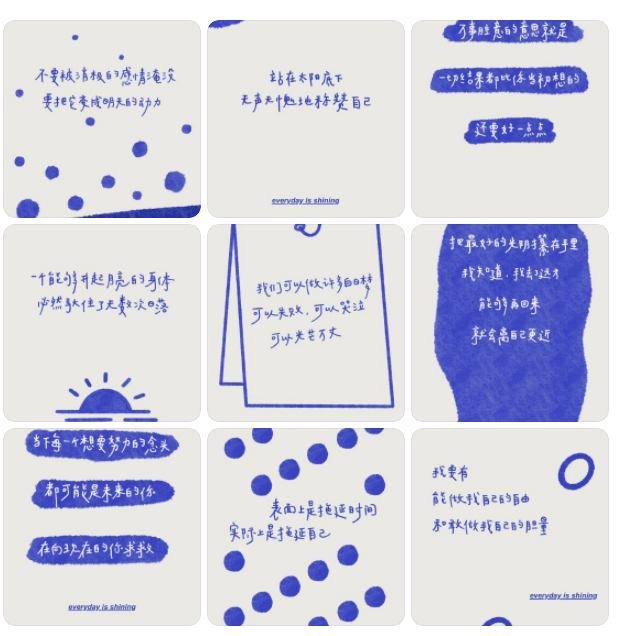 不要被消极的感情淹没
要把它变成明天的动力
站在太阳底下
无声无愧地称赞自己
everyday is shining
万事胜意的意思就是
一切结果都比你当初想的
还要好一点点
一个能够升起月亮的身体
必然驮住了无数次日落
我们可以做许多白日梦
可以失败，可以哭泣
可以光芒万丈
把最好的光阴攥在手里
我知道，我却这才
能够再回来
就会离自己更近
当下每一个想要努力的念头
都可能是未来的你
在向现在的你求救
everyday is shining
表面上是拖延时间
实际上是拖延自己
我要有
能做我自己的自由
和敢做我自己的胆量
everyday is shining